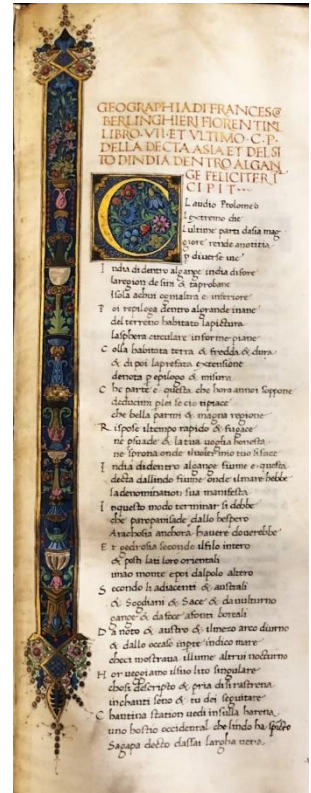 GEOGRAPHIA DI FRANCESCO
BERLINGHIERI FIORENTINI
LIBRO · VII · ET VLTIMO · C · P ·
DELLA DECTA ASIA ET DEL SI
TO DINDIA DENTRO AL GAN
GE FELICITER I
CIPIT
CLaudio Ptolomeo
lextremo che
lultime parti dasia mag
giore rende anotitia
p diuerse uie
India didentro algange india difore
laregion de sini & taprobane
Isola
Poi repiloga dentro alorande inane
del terreno habitato lapictura
lasphera circulare informe piane
Colla habitata terra & fredda & dura
& di poi laprefata extensione
denota p epilogo & misura
Che parte e questa che hora annoi soppone
deducimi
che bella parmi & magna regione
Rispose iltempo rapido & fugace
ne psuade & la tua uoglia honesta
ne sprona onde
India didentro algange fiume e questa
decta dallindo fiume onde ilmare hebbe
la denomination sua manifesta
Inquesto modo terminar si debbe
che paropanisade dallo hespero
Arachosia anchora hauere douerebbe
Et gedrosia secondo ilfilo intero
& posti lati loro orientali
imao monte epoi dalpolo altero
Secondo li adiacenti & australi
& Sogdiani & Sace & da uulturno
gange & dafoce afonti boreali
Da noto & austro & ilmezo arco diurno
& dallo occaso inpte indico mare
checi mostraua illume altrui nocturno
Hor uegiamo ilsuo lito singulare
chosi descripto & pria di
inchanti seto & tu dei seguitare
Chautina station uedi insulla harena
uno hostio occidental che lindo ha
Sagapa decto dassai largha uena